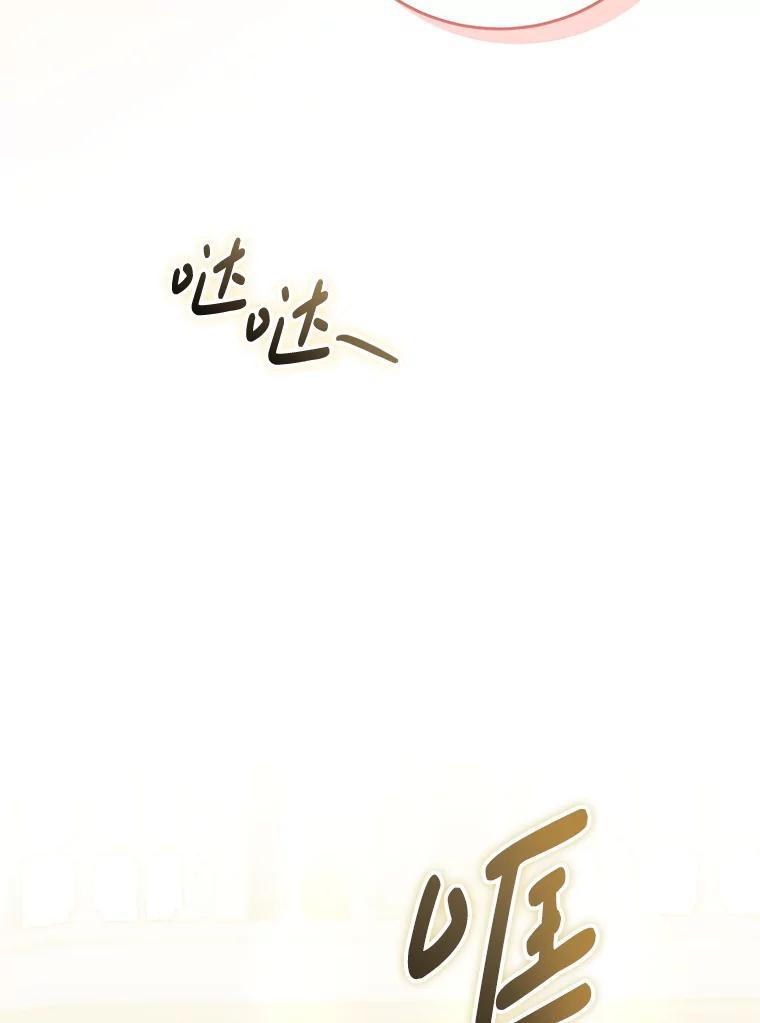 哒哒
哐